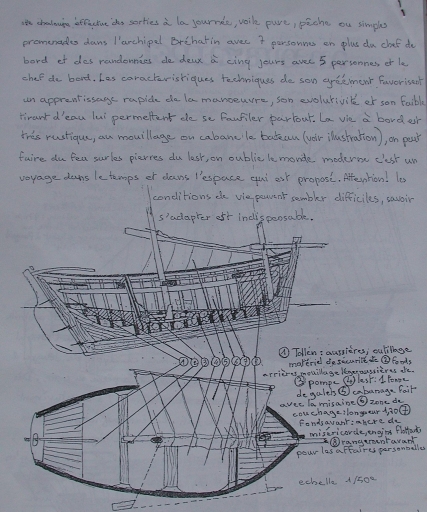 chaloupe effectue des sorties à la journée, voile pure, pêche ou simples
promenades dans l'archipel Bréhatin avec 7 personnes en plus du chef de
bord et des randonnées de deux à cinq jours avec 5 personnes et le
chef de bord. Les caractéristiques techniques de son gréement favorisent
un apprentissage rapide de la manoeuvre, son evolutivité et son faible
tirant d'eau lui permettent de se faufiler partout. La vie à bord est
très rustique, au mouillage ou cabane le bateau (voir illustration), on peut
faire du feu sur les pierres du lest, on oublie le monde moderne c'est un
voyage dans le temps et dans l'espace qui est proposé. Attention! les
conditions de vie peuvent sembler difficiles, savoir
s'adapter est indispensable.
① ② ③ ④ ⑤ ⑥ ⑦ ⑧
① Tollen : aussières, outillage
matériel de sécurité ② fonds
arrières mouillage léger aussières de
③ pompe ④ lest: 1 tonne
de galets ⑤ cabanage fait
avec la misaine ⑥ zone de
couchage: longueur 1,30 ⑦
Fonds avant: ancre de
miséricorde, engins flottants
⑧ rangement avant
pour les affaires personnelles
echelle 1/50e